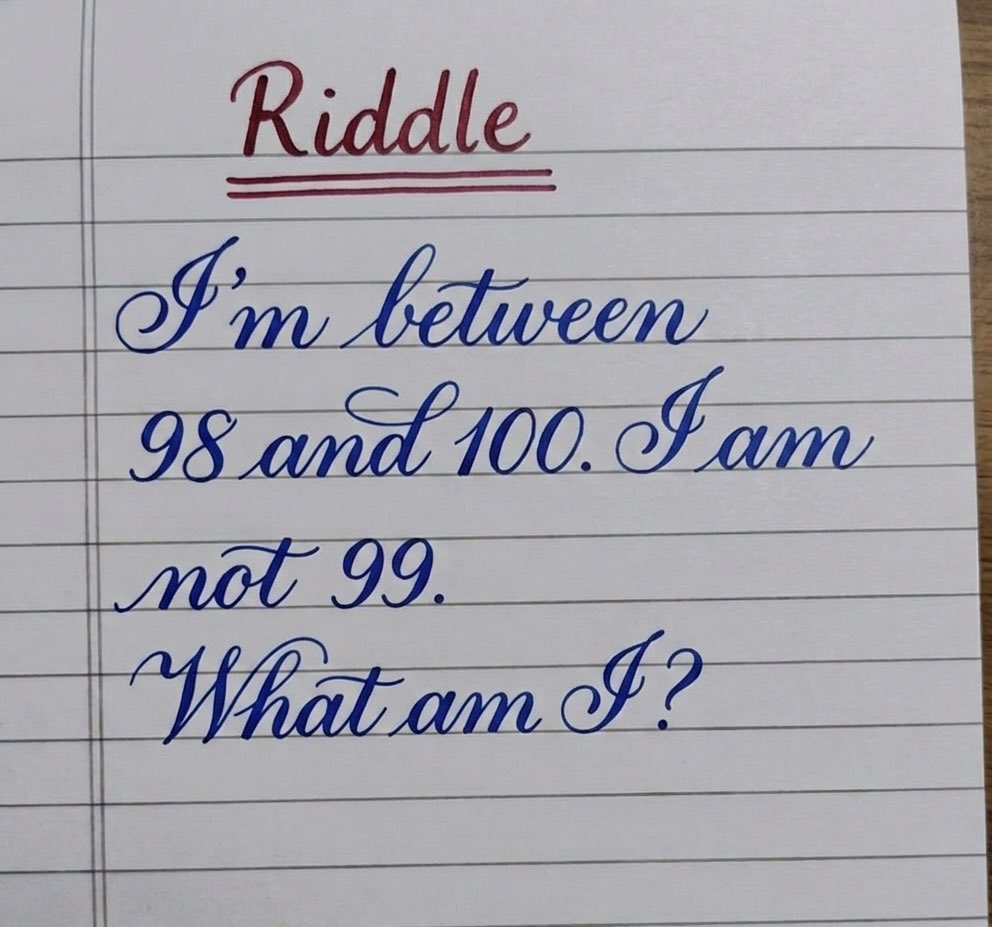 Riddle
I'm between
98 and 100. I am
not 99.
What am I?